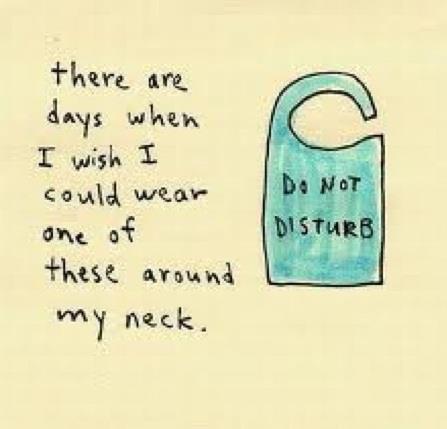 there are
days when
I wish I
could wear
one of
these around
my neck.
DO NOT
DISTURB